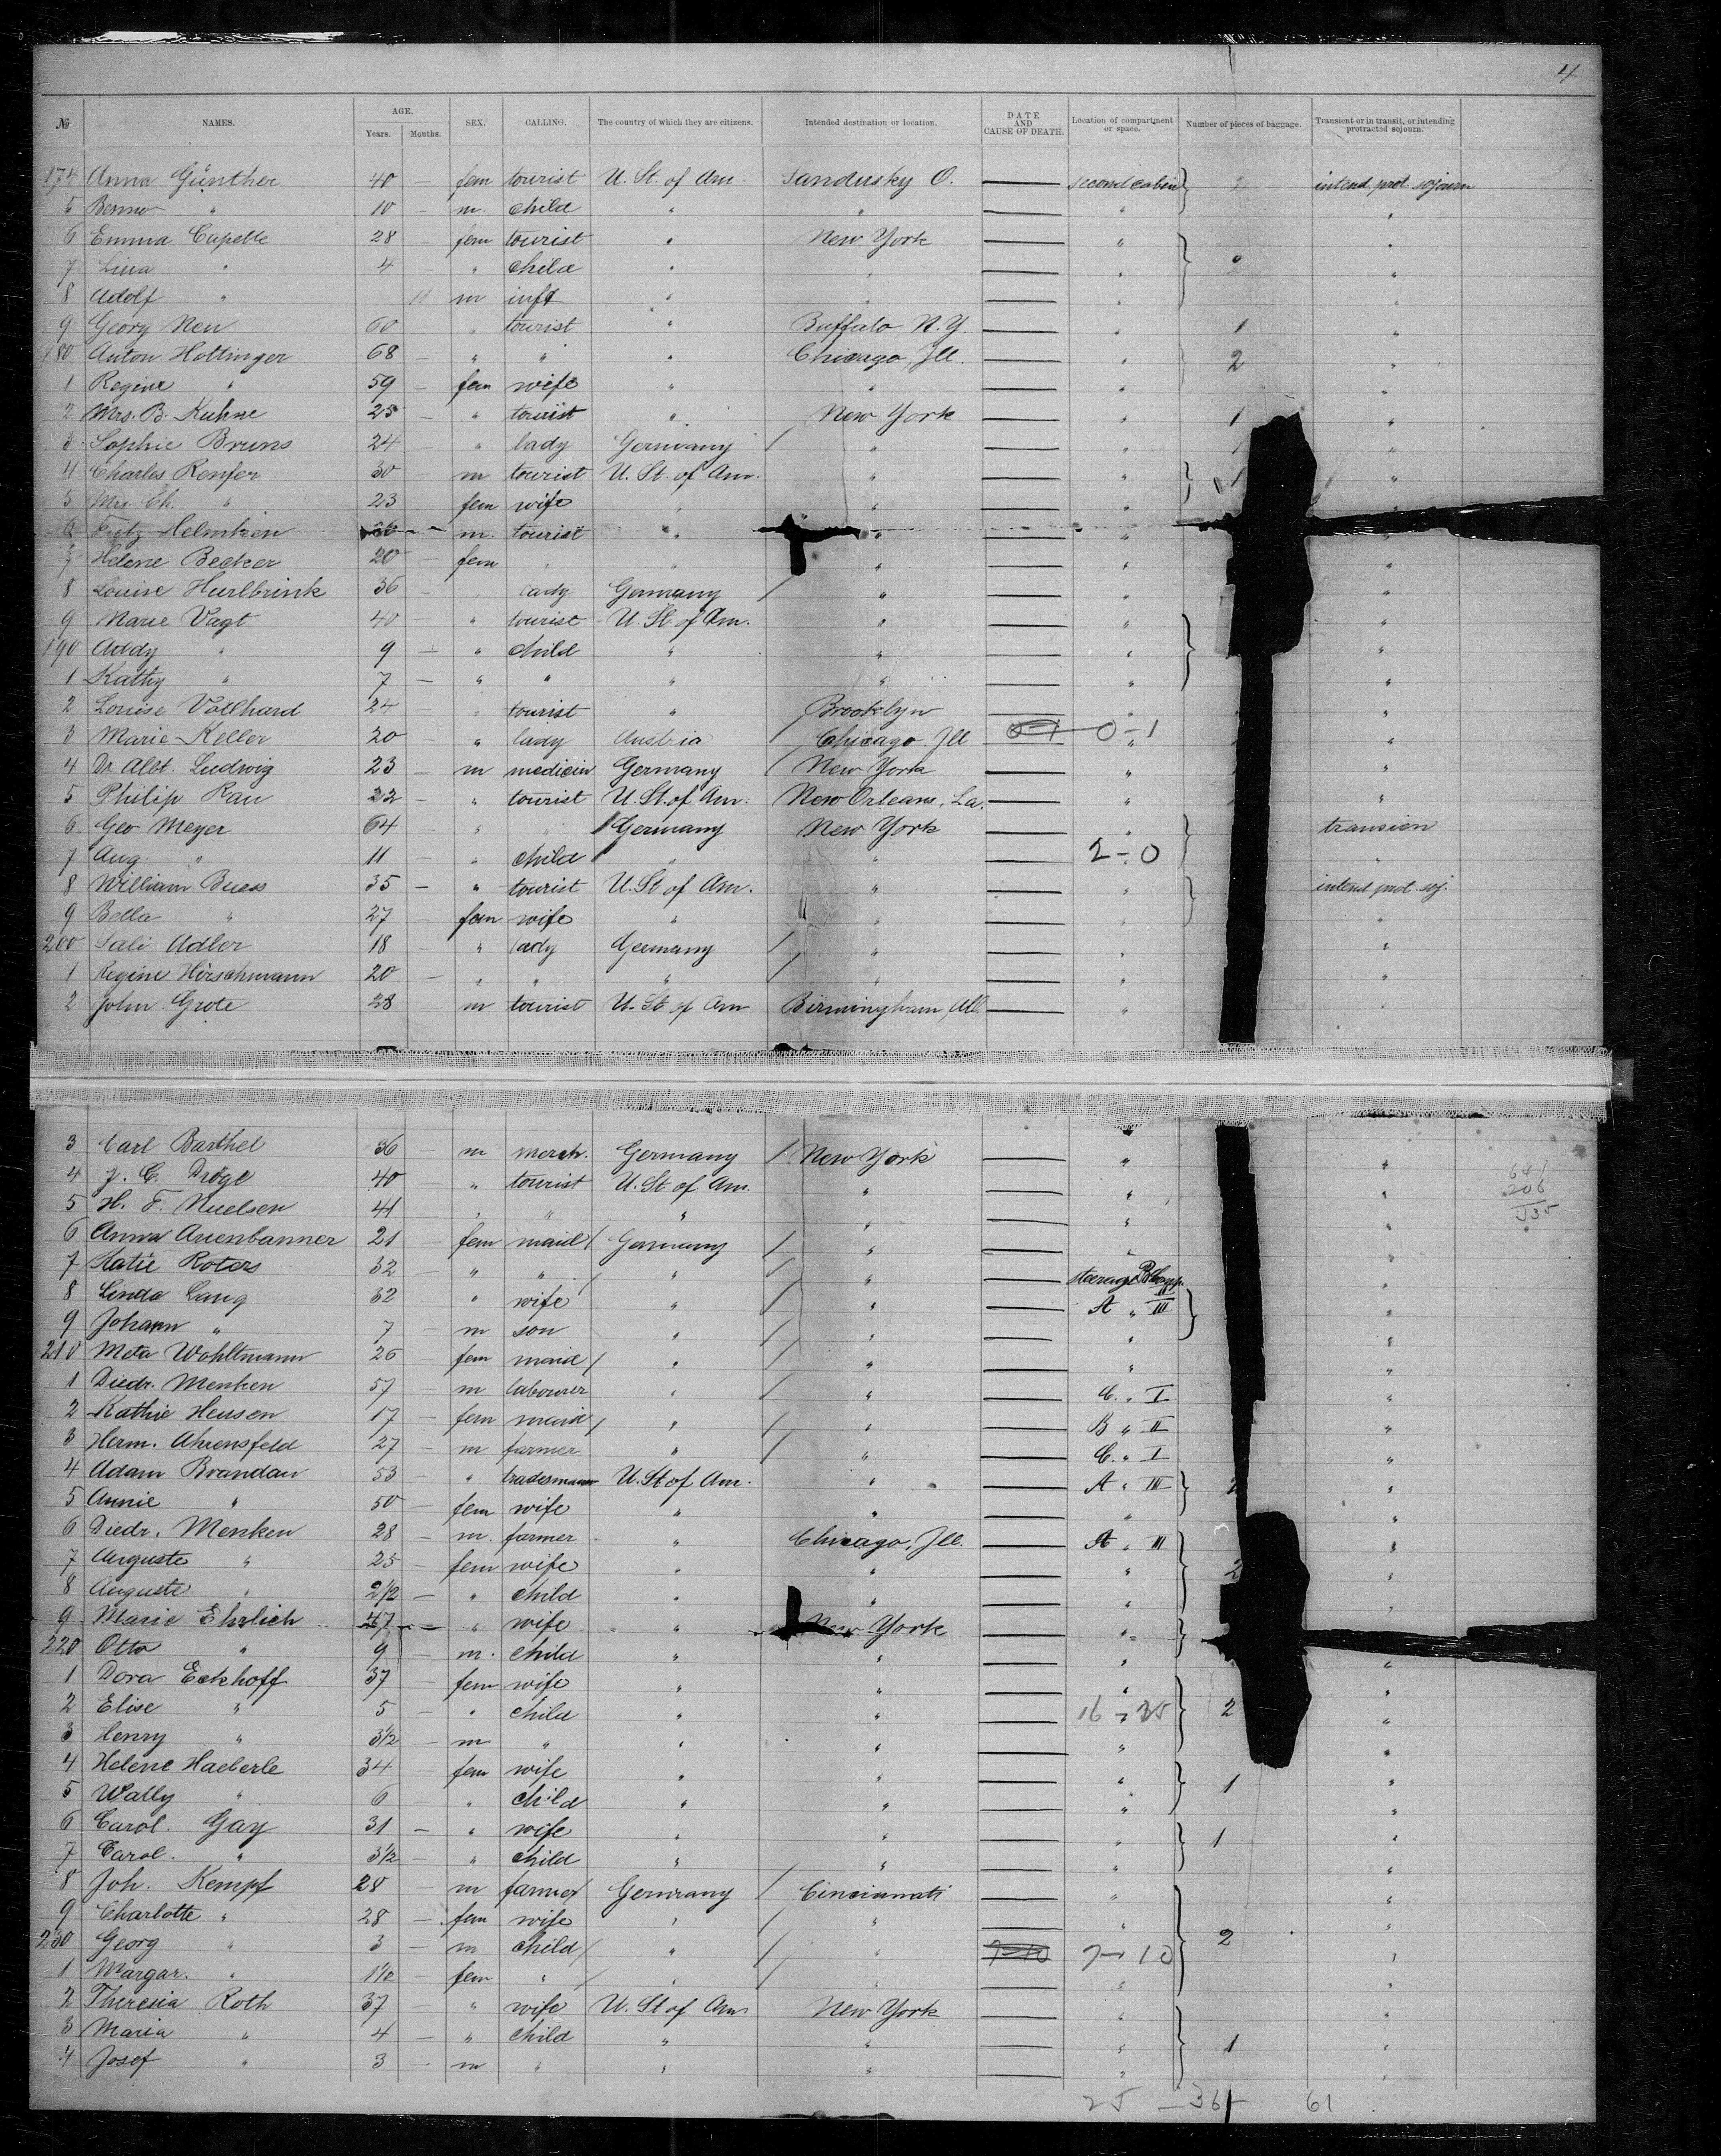 4
№ NAMES. AGE. Years. Months. SEX. CALLING. The country of which they are citizens. Intended destination or location. DATE AND CAUSE OF DEATH. Location of compartment or space. Number of pieces of baggage. Transient or in transit, or intending protracted sojourn.
174 Anna Günther 40 — fem tourist U. St. of Am. Sandusky O. — second cabin 2 intend. prot. sojourn
5 Benno " 10 — m. child " " — " "
6 Emma Capelle 28 — fem tourist " New York — " "
7 Lina " 4 — " child " " — " 2 "
8 Adolf " 11 m inft " " — " "
9 Georg Neu 60 " tourist " Buffalo N.Y. — " 1 "
180 Anton Hottinger 68 — " " " Chicago, Ill. — " 2 "
1 Regine " 59 — fem wife " " — " "
2 Mrs. B. Kuhne 25 — " tourist " New York — " 1 "
3 Sophie Bruns 24 — " lady Germany / " — " 1 "
4 Charles Renfer 30 — m tourist U. St. of Am. " — " 1 "
5 Mrs. Ch. " 23 fem wife " " — " "
6 Fritz Helmken 36 — m. tourist " " — " "
7 Helene Becker 20 — fem " " " — " "
8 Louise Hurlbrink 36 " lady Germany / " — " "
9 Marie Vagt 40 — " tourist U. St. of Am. " — " "
190 Addy " 9 — " child " " — " "
1 Kathy " 7 — " " " " — " "
2 Louise Vollhard 24 — " tourist " Brooklyn — " "
3 Marie Keller 20 " lady Austria / Chicago. Ill 0-1 0-1 " "
4 Dr. Albt. Ludwig 23 — m medicin Germany / New York — " "
5 Philip Rau 22 — " tourist U. St. of Am. New Orleans, La. — " "
6 Geo Meyer 64 — " " Germany New York — " transien
7 Aug. " 11 — " child " " — 2-0 "
8 William Buess 35 — " tourist U. St of Am. " — " intend prot. soj.
9 Bella " 27 — fem wife " " — " "
200 Sali Adler 18 " lady Germany / " — " "
1 Regine Hirschmann 20 — " " " / " — " "
2 John Grote 28 — m tourist U. St of Am Birmingham, All. — " "
3 Carl Barthel 36 — m merch. Germany / New York — " "
4 J. C. Dröge 40 — " tourist U. St of Am. " — " "
5 H. F. Nuelsen 41 " " " " — " "
6 Anna Auenbanner 21 — fem maid / Germany / " — " "
7 Katie Roters 32 — " " / " / " — steerage "
8 Linda Lang 32 " wife / " / " — A " III "
9 Johann " 7 — m son " / " — " "
210 Meta Wohltmann 26 — fem maid / " / " — " "
1 Diedr. Menken 57 — m labourer " / " — C. " I "
2 Kathie Heusen 17 — fem maid / " / " — B " II "
3 Herm. Ahrensfeld 27 — m farmer " / " — C. " I "
4 Adam Brandau 53 — " tradesmann U. St of Am. " — A " III 2 "
5 Annie " 50 — fem wife " " — " "
6 Diedr. Menken 28 — m. farmer " Chicago, Ill. — A " III "
7 Auguste " 25 — fem wife " " — " 2 "
8 Auguste " 2 1/2 — " child " " — " "
9 Marie Ehrlich 47 — " wife " New York — " "
220 Otto " 9 m. child " " — " "
1 Dora Eckhoff 37 fem wife " " — " "
2 Elise " 5 — " child " " — 16-35 2 "
3 Henry " 3 1/2 — m " " " — " "
4 Helene Haeberle 34 — fem wife " " — " 1 "
5 Wally " 6 " child " " — " "
6 Carol. Gay 31 — " wife " " — " 1 "
7 Carol. " 3 1/2 — " child " " — " "
8 Joh. Kempf 28 — m farmer / Germany / Cincinnati — " "
9 Charlotte " 28 — fem wife " / " — " 2 "
230 Georg " 3 — m child / " / " 7-10 7-10 "
1 Margar. " 1 1/2 — fem " / " / " — " "
2 Theresia Roth 37 — " wife U. St of Am New York — " "
3 Maria " 4 — " child " " — " 1 "
4 Josef " 3 — m " " " — " "
25 — 36 61